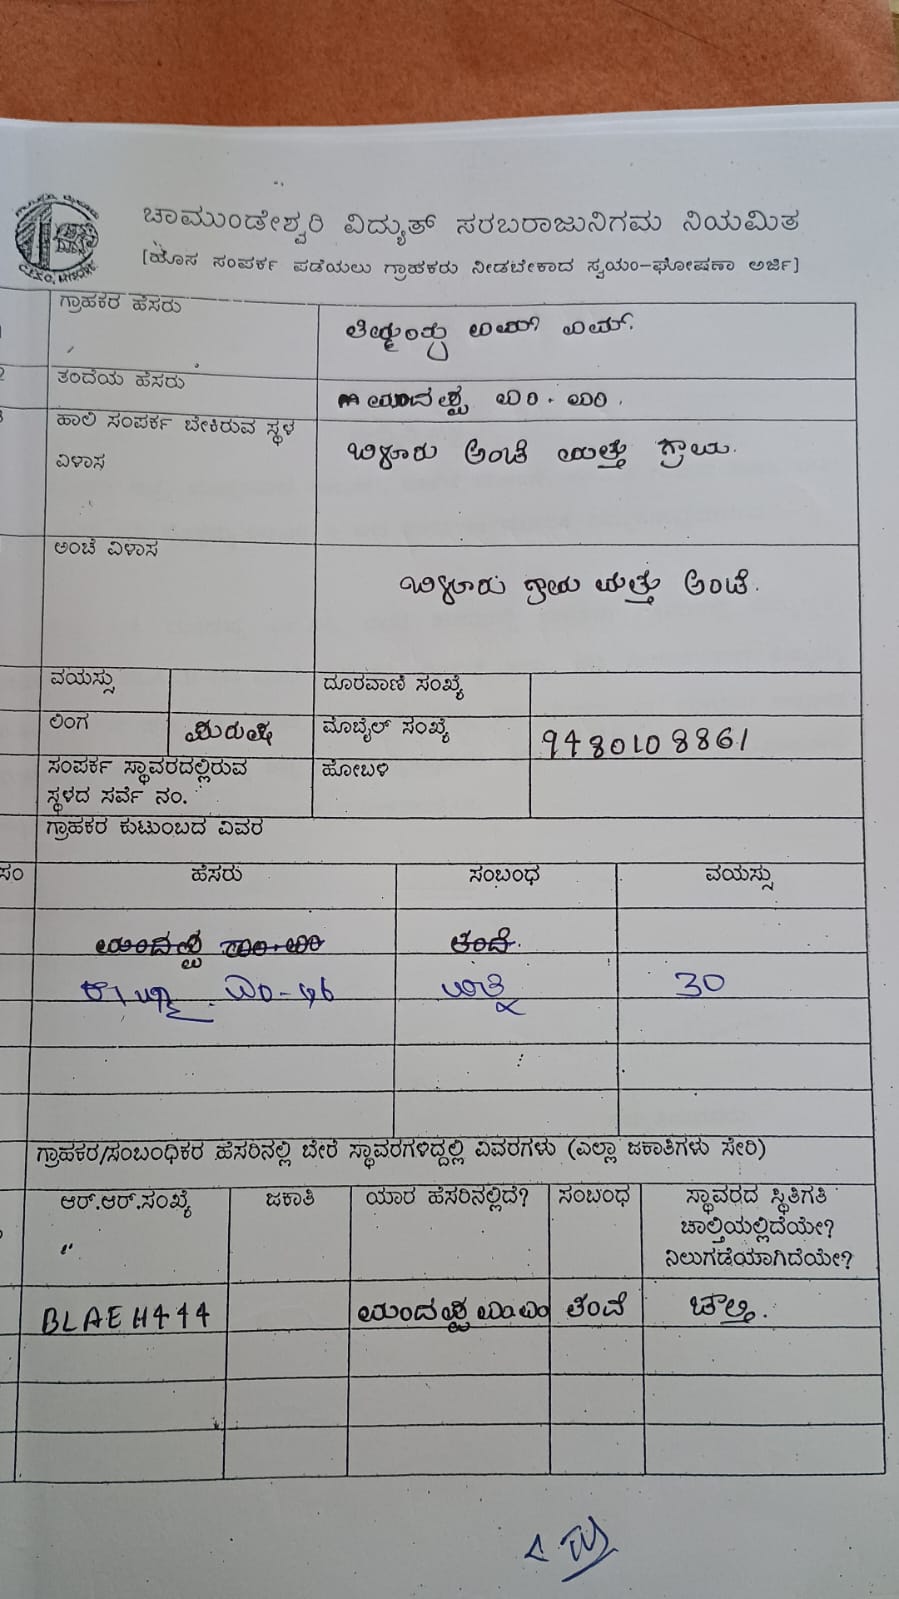 ಚಾಮುಂಡೇಶ್ವರಿ ವಿದ್ಯುತ್ ಸರಬರಾಜುನಿಗಮ ನಿಯಮಿತ
[ಹೊಸ ಸಂಪರ್ಕ ಪಡೆಯಲು ಗ್ರಾಹಕರು ನೀಡಬೇಕಾದ ಸ್ವಯಂ-ಘೋಷಣಾ ಅರ್ಜಿ]
ಗ್ರಾಹಕರ ಹೆಸರು
ತಂದೆಯ ಹೆಸರು
ಹಾಲಿ ಸಂಪರ್ಕ ಬೇಕಿರುವ ಸ್ಥಳ
ವಿಳಾಸ
ಬಿಳೂರು ಅಂಚೆ ಮತ್ತು ಗ್ರಾಮ.
ಅಂಚೆ ವಿಳಾಸ
ಬಿಳೂರು ಗ್ರಾಮ ಮತ್ತು ಅಂಚೆ.
ವಯಸ್ಸು ದೂರವಾಣಿ ಸಂಖ್ಯೆ
ಲಿಂಗ ಮೊಬೈಲ್ ಸಂಖ್ಯೆ 9480108861
ಸಂಪರ್ಕ ಸ್ಥಾವರದಲ್ಲಿರುವ ಹೋಬಳಿ
ಸ್ಥಳದ ಸರ್ವೆ ನಂ.
ಗ್ರಾಹಕರ ಕುಟುಂಬದ ವಿವರ
ಸಂ ಹೆಸರು ಸಂಬಂಧ ವಯಸ್ಸು
ತಂದೆ.
ಪತ್ನಿ 30
ಗ್ರಾಹಕರ/ಸಂಬಂಧಿಕರ ಹೆಸರಿನಲ್ಲಿ ಬೇರೆ ಸ್ಥಾವರಗಳಿದ್ದಲ್ಲಿ ವಿವರಗಳು (ಎಲ್ಲಾ ಜಕಾತಿಗಳು ಸೇರಿ)
ಆರ್.ಆರ್.ಸಂಖ್ಯೆ ಜಕಾತಿ ಯಾರ ಹೆಸರಿನಲ್ಲಿದೆ? ಸಂಬಂಧ ಸ್ಥಾವರದ ಸ್ಥಿತಿಗತಿ
ಚಾಲ್ತಿಯಲ್ಲಿದೆಯೇ?
ನಿಲುಗಡೆಯಾಗಿದೆಯೇ?
BLAEH444 ತಂದೆ ಚಾಲ್ತಿ.